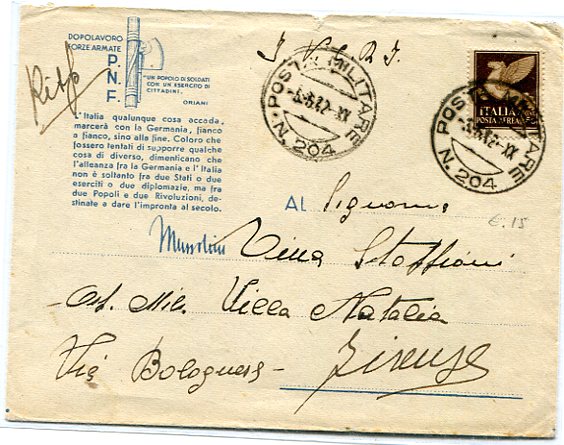 DOPOLAVORO
FORZE ARMATE
P.
N.
F.
"UN POPOLO DI SOLDATI
CON UN ESERCITO DI
CITTADINI.
ORIANI
L'Italia qualunque cosa accada,
marcerà con la Germania, fianco
a fianco, sino alla fine. Coloro che
fossero tentati di supporre qualche
cosa di diverso, dimenticano che
l'alleanza fra la Germania e l'Italia
non è soltanto fra due Stati o due
eserciti o due diplomazie, ma fra
due Popoli e due Rivoluzioni, de-
stinate a dare l'impronta al secolo.
Mussolini
POSTA MILITARE
-5.5.42-XX
N. 204
ITALIA
POSTA AEREA
POSTA MILITARE
-5.5.42-XX
N. 204
€. 15
AL Signorina
Osp. Mil. Villa Natalia
Via Bolognese -
Firenze